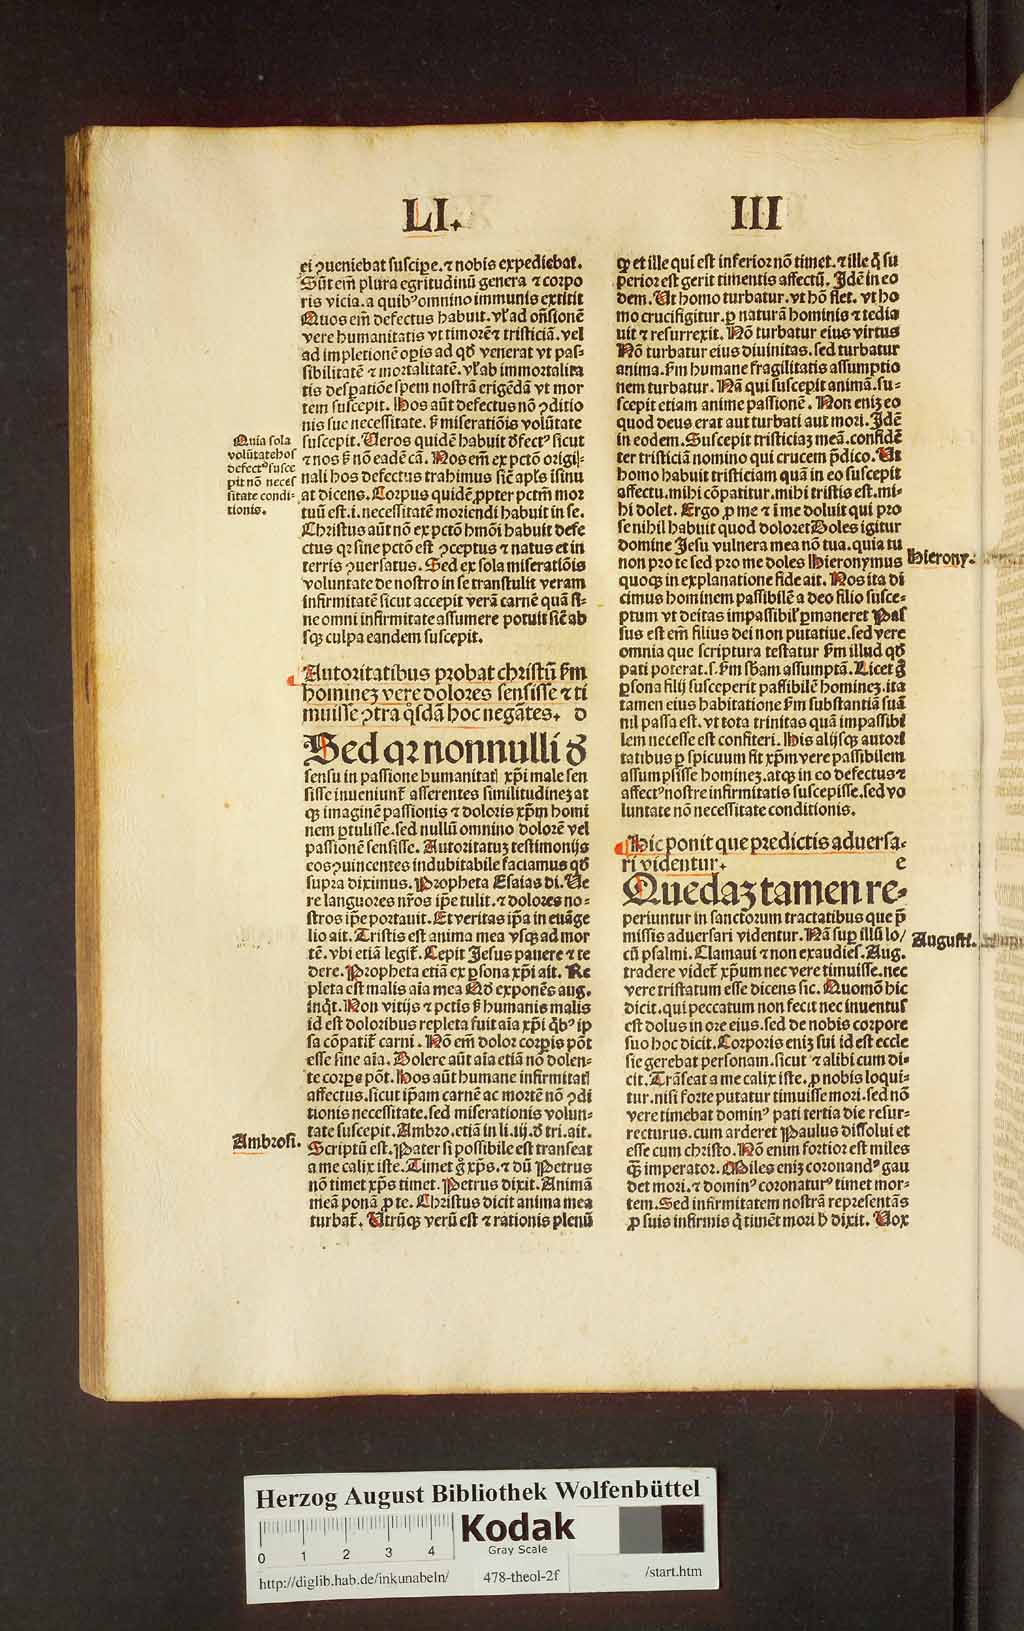 LI.
III
ei ꝯueniebat suscipe.⁊ nobis expediebat.
Sūt em̄ plura egritudinū genera ⁊ corpo
ris vicia.a quibꝰ omnino immunis extitit
Quos em̄ defectus habuit.vl̓ ad oñsionē
vere humanitatis vt timorē ⁊ tristiciā.vel
ad impletionē oꝑis ad qd̓ venerat vt pas-
sibilitatē ⁊ mortalitatē.vl̓ ab immortalita
tis desꝑatiōe spem nostrā erigēdā vt mor
tem suscepit. Hos aūt defectus nō ꝯditio
nis sue necessitate. s̓ miseratiōis volūtate
suscepit. Veros quidē habuit d̓fectꝰ sicut
⁊ nos s̓ nō eadē cā. Nos em̄ ex pctō origi-
nali hos defectus trahimus sic̄ apl̓s īsinu
at dicens. Corpus quidē ꝓpter pctm̄ mor
tuū est.i.necessitatē moriendi habuit in se.
Christus aūt nō ex pctō hmōi habuit defe
ctus qꝛ sine pctō est ꝯceptus ⁊ natus et in
terris ꝯuersatus. Sed ex sola miseratiōis
voluntate de nostro in se transtulit veram
infirmitatē sicut accepit verā carnē quā si-
ne omni infirmitate assumere potuit sic̄ ab
sqꝫ culpa eandem suscepit.
Quia sola
volūtate hos
defectꝰ susce
pit nō neces
sitate condi-
tionis.
Autoritatibus probat christū s̓m
hominez vere dolores sensisse ⁊ ti
muisse ꝯtra qͦsdā hoc negātes. d
Sed qꝛ nonnulli d̓
sensu in passione humanitatꝭ xp̄i male sen
sisse inueniunt̄ asserentes similitudinez at
qꝫ imaginē passionis ⁊ doloris xp̄m homi
nem ꝑtulisse.sed nullū omnino dolorē vel
passionē sensisse. Autoritatuꝫ testimonijs
eos ꝯuincentes indubitabile faciamus qd̓
supra diximus. Propheta Esaias di. Ve
re languores nr̄os ip̄e tulit.⁊ dolores no-
stros ip̄e portauit. Et veritas ip̄a in euāge
lio ait. Tristis est anima mea vsqꝫ ad mor
tē.vbi etiā legit̄. Cepit Jesus pauere ⁊ te
dere. Propheta etiā ex ꝑsona xp̄i ait. Re
pleta est malis aīa mea Qd̓ exponēs aug.
inqͥt. Non vitijs ⁊ pctis s̓ humanis malis
id est doloribus repleta fuit aīa xp̄i qͥbꝰ ip
sa cōpatit̄ carni. Nō em̄ dolor corꝑis pōt
esse sine aīa. Dolere aūt aīa etiā nō dolen-
te corꝑe pōt. Hos aūt humane infirmitatꝭ
affectus.sicut ip̄am carnē ac mortē nō ꝯdi
tionis necessitate.sed miserationis volun-
tate suscepit. Ambro.etiā in li.iij.d̓ tri.ait.
Scriptū est. Pater si possibile est transeat
a me calix iste. Timet gͦ xp̄s.⁊ dū Petrus
nō timet xp̄s timet. Petrus dixit. Animā
meā ponā ꝓ te. Christus dicit anima mea
turbat̄. Vtrūqꝫ verū est ⁊ rationis plenū
Ambrosi.
qꝫ et ille qui est inferior nō timet.⁊ ille qͥ su
perior est gerit timentis affectū. Jdē in eo
dem. Vt homo turbatur.vt hō flet. vt ho
mo crucifigitur.ꝑ naturā hominis ⁊ tedia
uit ⁊ resurrexit. Nō turbatur eius virtus
Nō turbatur eius diuinitas.sed turbatur
anima.s̓m humane fragilitatis assumptio
nem turbatur. Nā qui suscepit animā.su-
scepit etiam anime passionē. Non eniꝫ eo
quod deus erat aut turbati aut mori. Jdē
in eodem.Suscepit tristiciaꝫ meā.confidē
ter tristiciā nomino qui crucem p̄dico. Vt
homo habuit tristiciam quā in eo suscepit
affectu.mihi cōpatitur.mihi tristis est.mi-
hi dolet. Ergo ꝓ me ⁊ ī me doluit qui pro
se nihil habuit quod doloret Doles igitur
domine Jesu vulnera mea nō tua.quia tu
non pro te sed pro me doles Hieronymus
quoqꝫ in explanatione fide ait. Nos ita di
cimus hominem passibilē a deo filio susce-
ptum vt deitas impassibil̓ ꝑmaneret Pas
sus est em̄ filius dei non putatiue.sed vere
omnia que scriptura testatur s̓m illud qd̓
pati poterat.s.s̓m sb̓am assumptā. Licet gͦ
ꝑsona filij susceperit passibilē hominez.ita
tamen eius habitatione s̓m substantiā suā
nil passa est.vt tota trinitas quā impassibi
lem necesse est confiteri. His alijsqꝫ autori
tatibus ꝑspicuum fit xp̄m vere passibilem
assumpsisse hominez.atqꝫ in eo defectus ⁊
affectꝰ nostre infirmitatis suscepisse.sed vo
luntate nō necessitate conditionis.
Hierony.
Hic ponit que predictis aduersa-
ri videntur. e
Quedaꝫ tamen re-
periuntur in sanctorum tractatibus que p̄
missis aduersari videntur. Nā suꝑ illū lo/
cū psalmi. Clamaui ⁊ non exaudies. Aug.
tradere videt̄ xp̄um nec vere timuisse.nec
vere tristatum esse dicens sic. Quomō hic
dicit.qui peccatum non fecit nec inuentus
est dolus in ore eius.sed de nobis corpore
suo hoc dicit. Corporis eniꝫ sui id est eccle
sie gerebat personam.sicut ⁊ alibi cum di-
cit. Trāseat a me calix iste.ꝓ nobis loqui-
tur.nisi forte putatur timuisse mori.sed nō
vere timebat dominꝰ pati tertia die resur-
recturus.cum arderet Paulus dissolui et
esse cum christo. Nō enim fortior est miles
qͣꝫ imperator. Miles eniꝫ coronandꝰ gau
det mori.⁊ dominꝰ coronaturꝰ timet mor-
tem. Sed infirmitatem nostrā representās
ꝓ suis infirmis qͥ timēt mori h̓ dixit. Vox
Augusti.
Herzog August Bibliothek Wolfenbüttel
0 1 2 3 4
Kodak
Gray Scale
http://diglib.hab.de/inkunabeln/
478-theol-2f
/start.htm